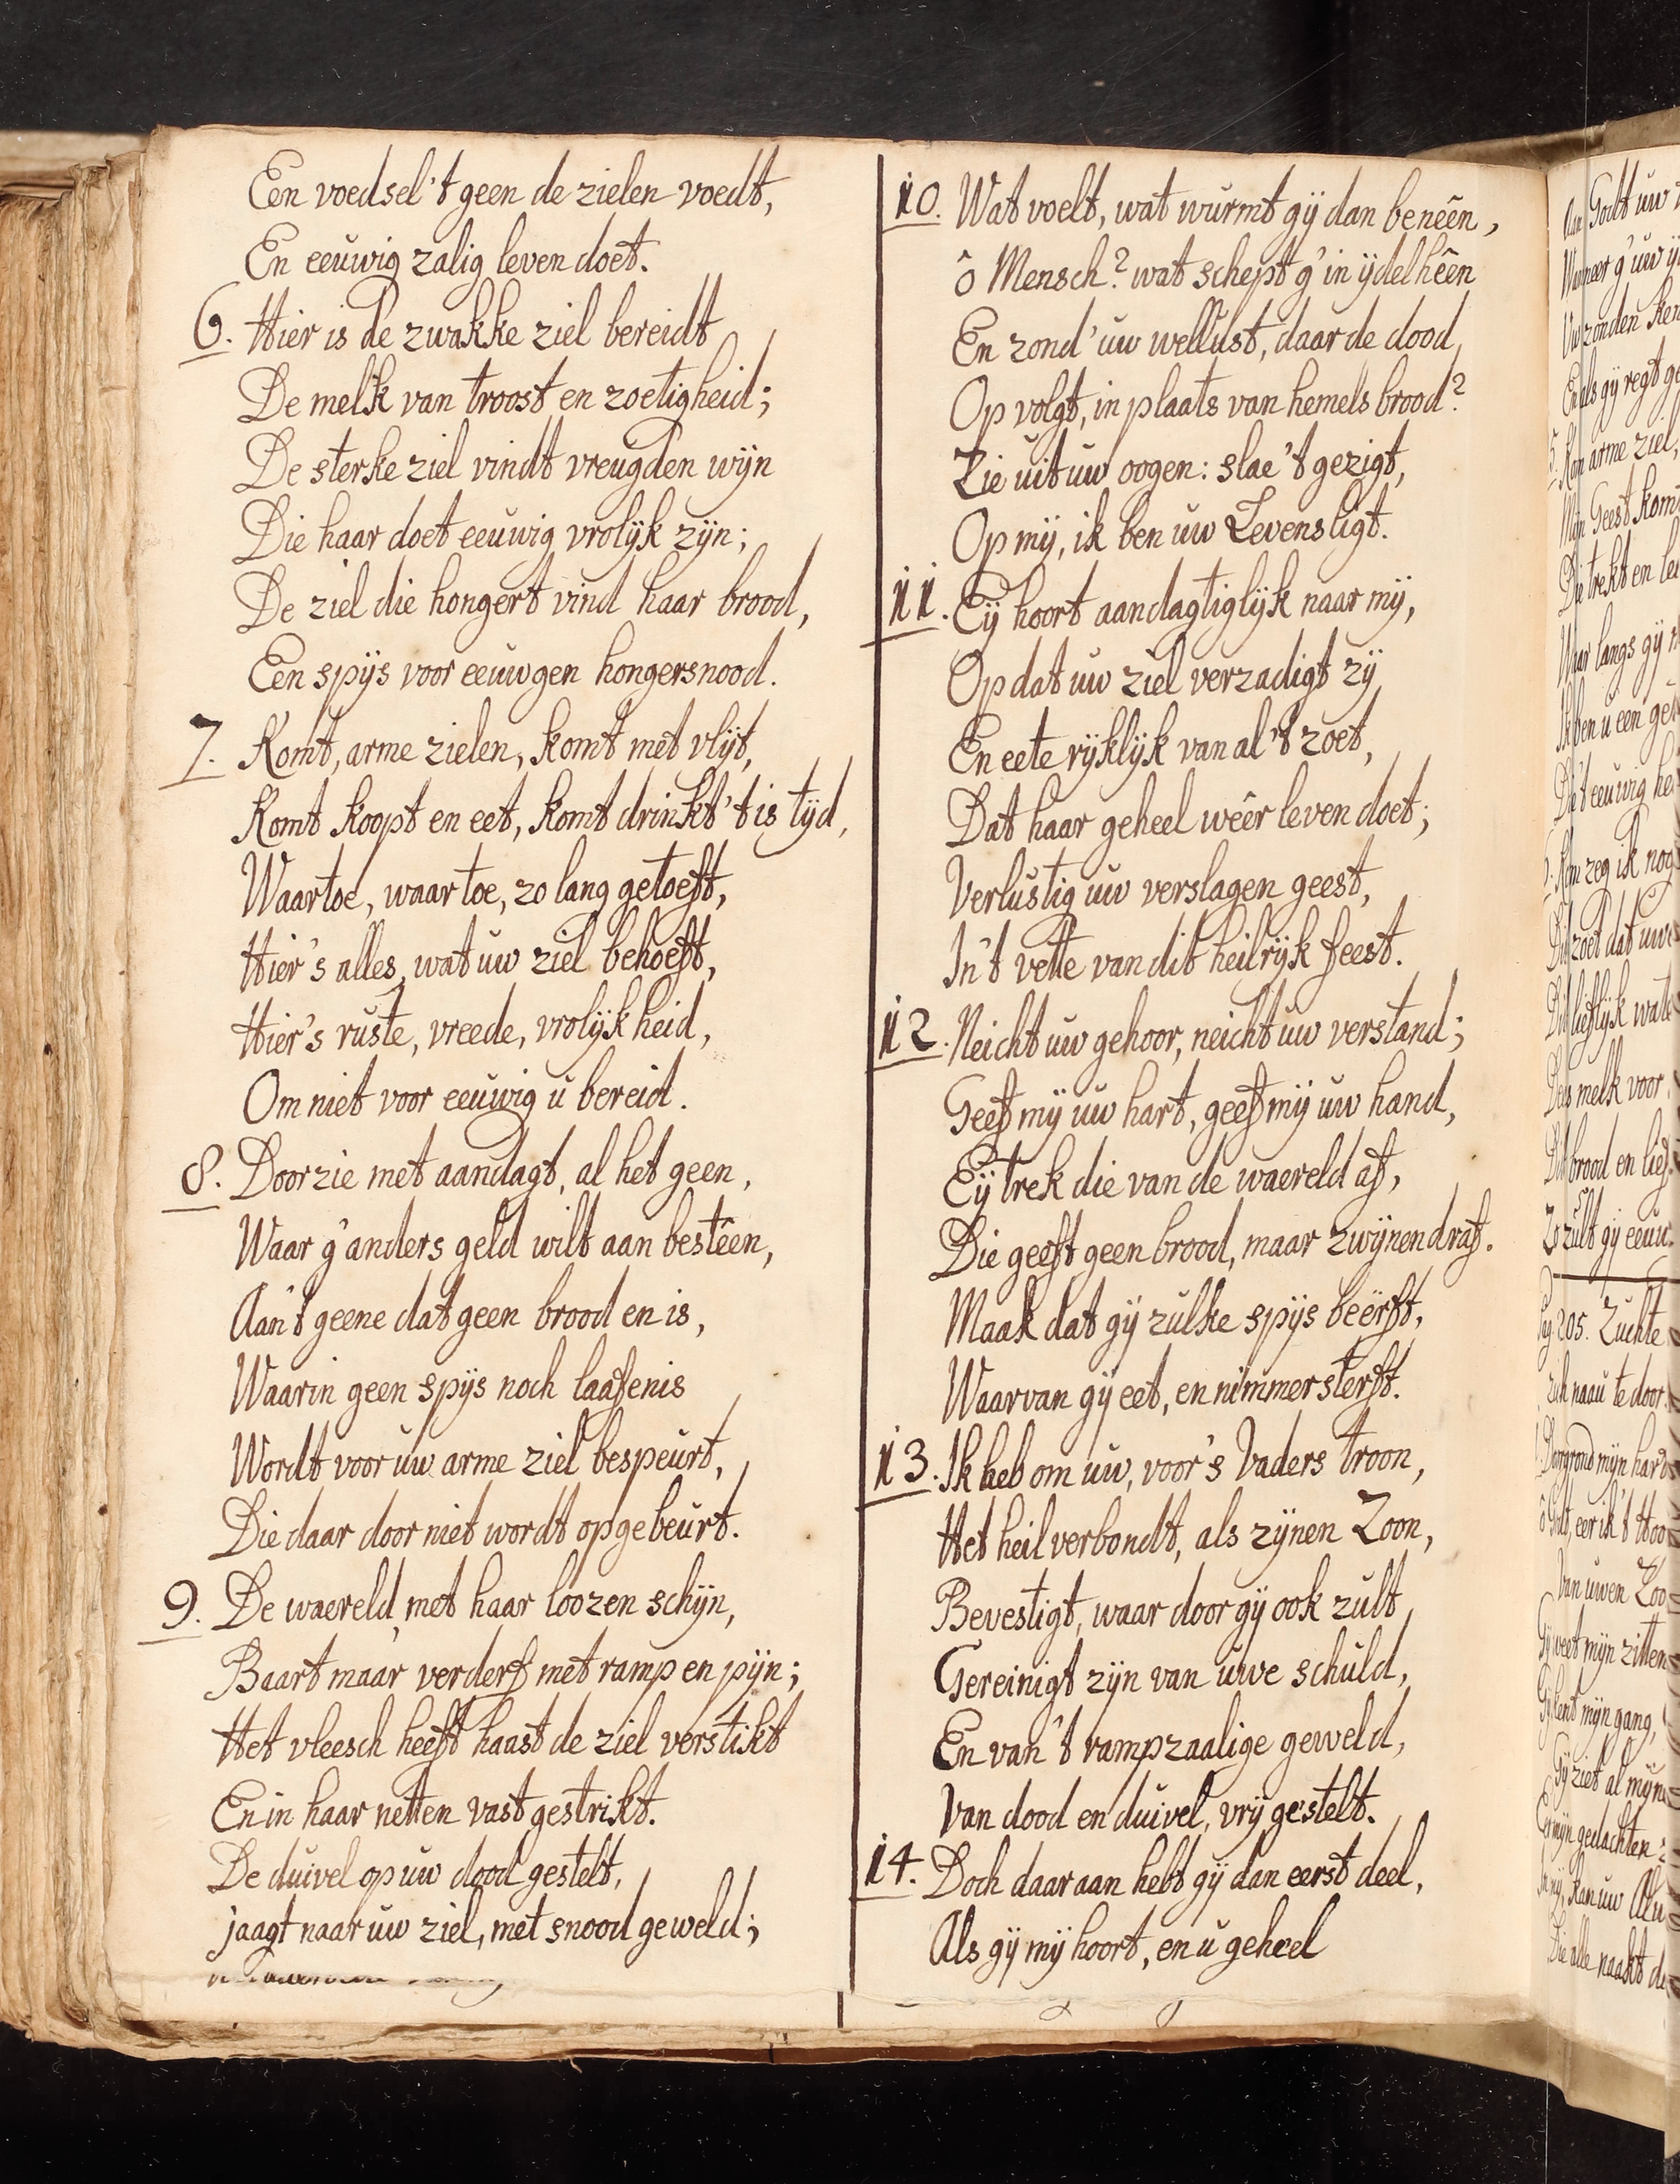 Een voedsel 't geen de zielen voedt,
En eeuwig zalig leven doet.
6. Hier is de zwakke ziel bereidt
De melk van troost en zoetigheid;
De sterke ziel vindt vreugden wijn
Die haar doet eeuwig vrolijk zijn;
De ziel die hongert vind haar brood,
Een spijs voor eeuwgen hongersnood.
7. Komt, arme zielen, komt met vlijt,
Komt koopt en eet, komt drinkt 't is tijd,
Waartoe, waar toe, zo lang getoeft,
Hier's alles, wat uw ziel behoeft,
Hier's ruste, vreede, vrolijkheid,
Om niet voor eeuwig u bereid.
8. Doorzie met aandagt, al het geen,
Waar g'anders geld wilt aan bestêen,
Aan't geene dat geen brood en is,
Waarin geen spijs noch laafenis
Wordt voor uw arme ziel bespeurt,
Die daar door niet wordt opgebeurt.
9. De waereld, met haar loozen schijn,
Baart maar verderf met ramp en pijn;
Het vleesch heeft haast de ziel verstikt
En in haar netten vast gestrikt.
De duivel op uw dood gestelt,
jaagt naar uw ziel, met snood geweld;
10. Wat voelt, wat wurmt gij dan benêen,
ô Mensch? wat schept g'in ijdelhêen
En zond' uw wellust, daar de dood
Op volgt, in plaats van hemels brood?
Zie uit uw oogen: slae 't gezigt,
Op mij, ik ben uw Levensligt.
11. Eij hoort aandagtiglijk naar mij,
Op dat uw ziel verzadigt zij
En eete rijklijk van al 't zoet,
Dat haar geheel wêer leven doet;
Verlustig uw verslagen geest,
In't vette van dit heilrijk feest.
12. Neicht uw gehoor, neicht uw verstand;
Geef mij uw hart, geef mij uw hand,
Eij trek die van de waereld af,
Die geeft geen brood, maar zwijnen draf.
Maak dat gij zulke spijs beërft,
Waarvan gij eet, en nimmer sterft.
13. Ik heb om uw, voor 's Vaders troon,
Het heilverbondt, als zijnen Zoon,
Bevestigt, waar door gij ook zult
Gereinigt zijn van uwe schuld,
En van 't rampzaalige geweld,
Van dood en duivel, vrij gestelt.
14. Doch daar aan hebt gij dan eerst deel,
Als gij mij hoort, en u geheel
Godt uw
g'uw
zonden
als gij regt
arme ziel,
Geest kom
trekt en
langs gij
ben u een
't eeuwig
zeg ik nog
zoet dat uw
melk voor
brood en
zult gij eeuw
205. Zuchte
naau te door
mijn
eer ik 't
Van uwen Zoo
weet mijn zitten
kent mijn gang,
Gij ziet al mijn
mijn gedachten
kan uw
Die alle naakt